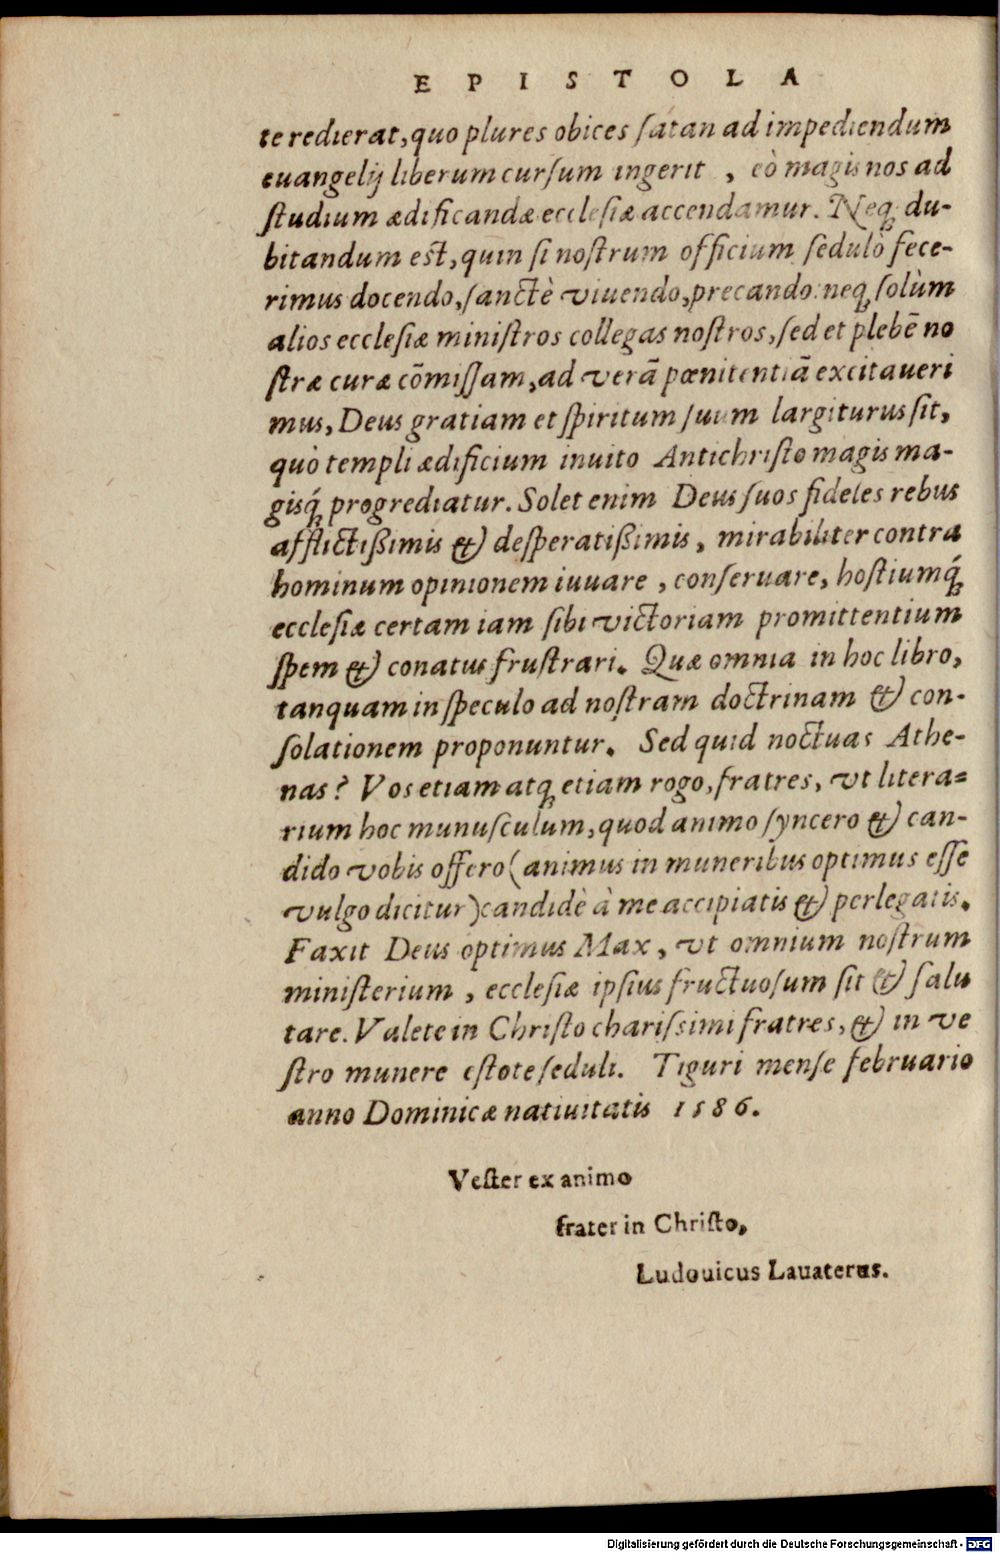 EPISTOLA
te redierat, quo plures obices satan ad impediendum
euangelij liberum cursum ingerit, eò magis nos ad
studium ædificandæ ecclesiæ accendamur. Neq; du-
bitandum est, quin si nostrum officium sedulò fece-
rimus docendo, sanctè viuendo, precando: neq; solùm
alios ecclesiæ ministros collegas nostros, sed et plebē no
stræ curæ cōmissam, ad verā pœnitentiā excitaueri
mus, Deus gratiam et spiritum suum largiturus sit,
quò templi ædificium inuito Antichristo magis ma-
gisq́; progrediatur. Solet enim Deus suos fideles rebus
afflictißimis & desperatißimis, mirabiliter contra
hominum opinionem iuuare, conseruare, hostiumq́;
ecclesiæ certam iam sibi victoriam promittentium
spem & conatus frustrari. Quæ omnia in hoc libro,
tanquam in speculo ad nostram doctrinam & con-
solationem proponuntur. Sed quid noctuas Athe-
nas? Vos etiam atq; etiam rogo, fratres, vt litera-
rium hoc munusculum, quod animo syncero & can-
dido vobis offero (animus in muneribus optimus esse
vulgo dicitur) candidè à me accipiatis & perlegatis.
Faxit Deus optimus Max, vt omnium nostrum
ministerium, ecclesiæ ipsius fructuosum sit & salu
tare. Valete in Christo charissimi fratres, & in ve
stro munere estote seduli. Tiguri mense februario
anno Dominicæ natiuitatis 1586.
Vester ex animo
frater in Christo,
Ludouicus Lauaterus.
Digitalisierung gefördert durch die Deutsche Forschungsgemeinschaft - DFG